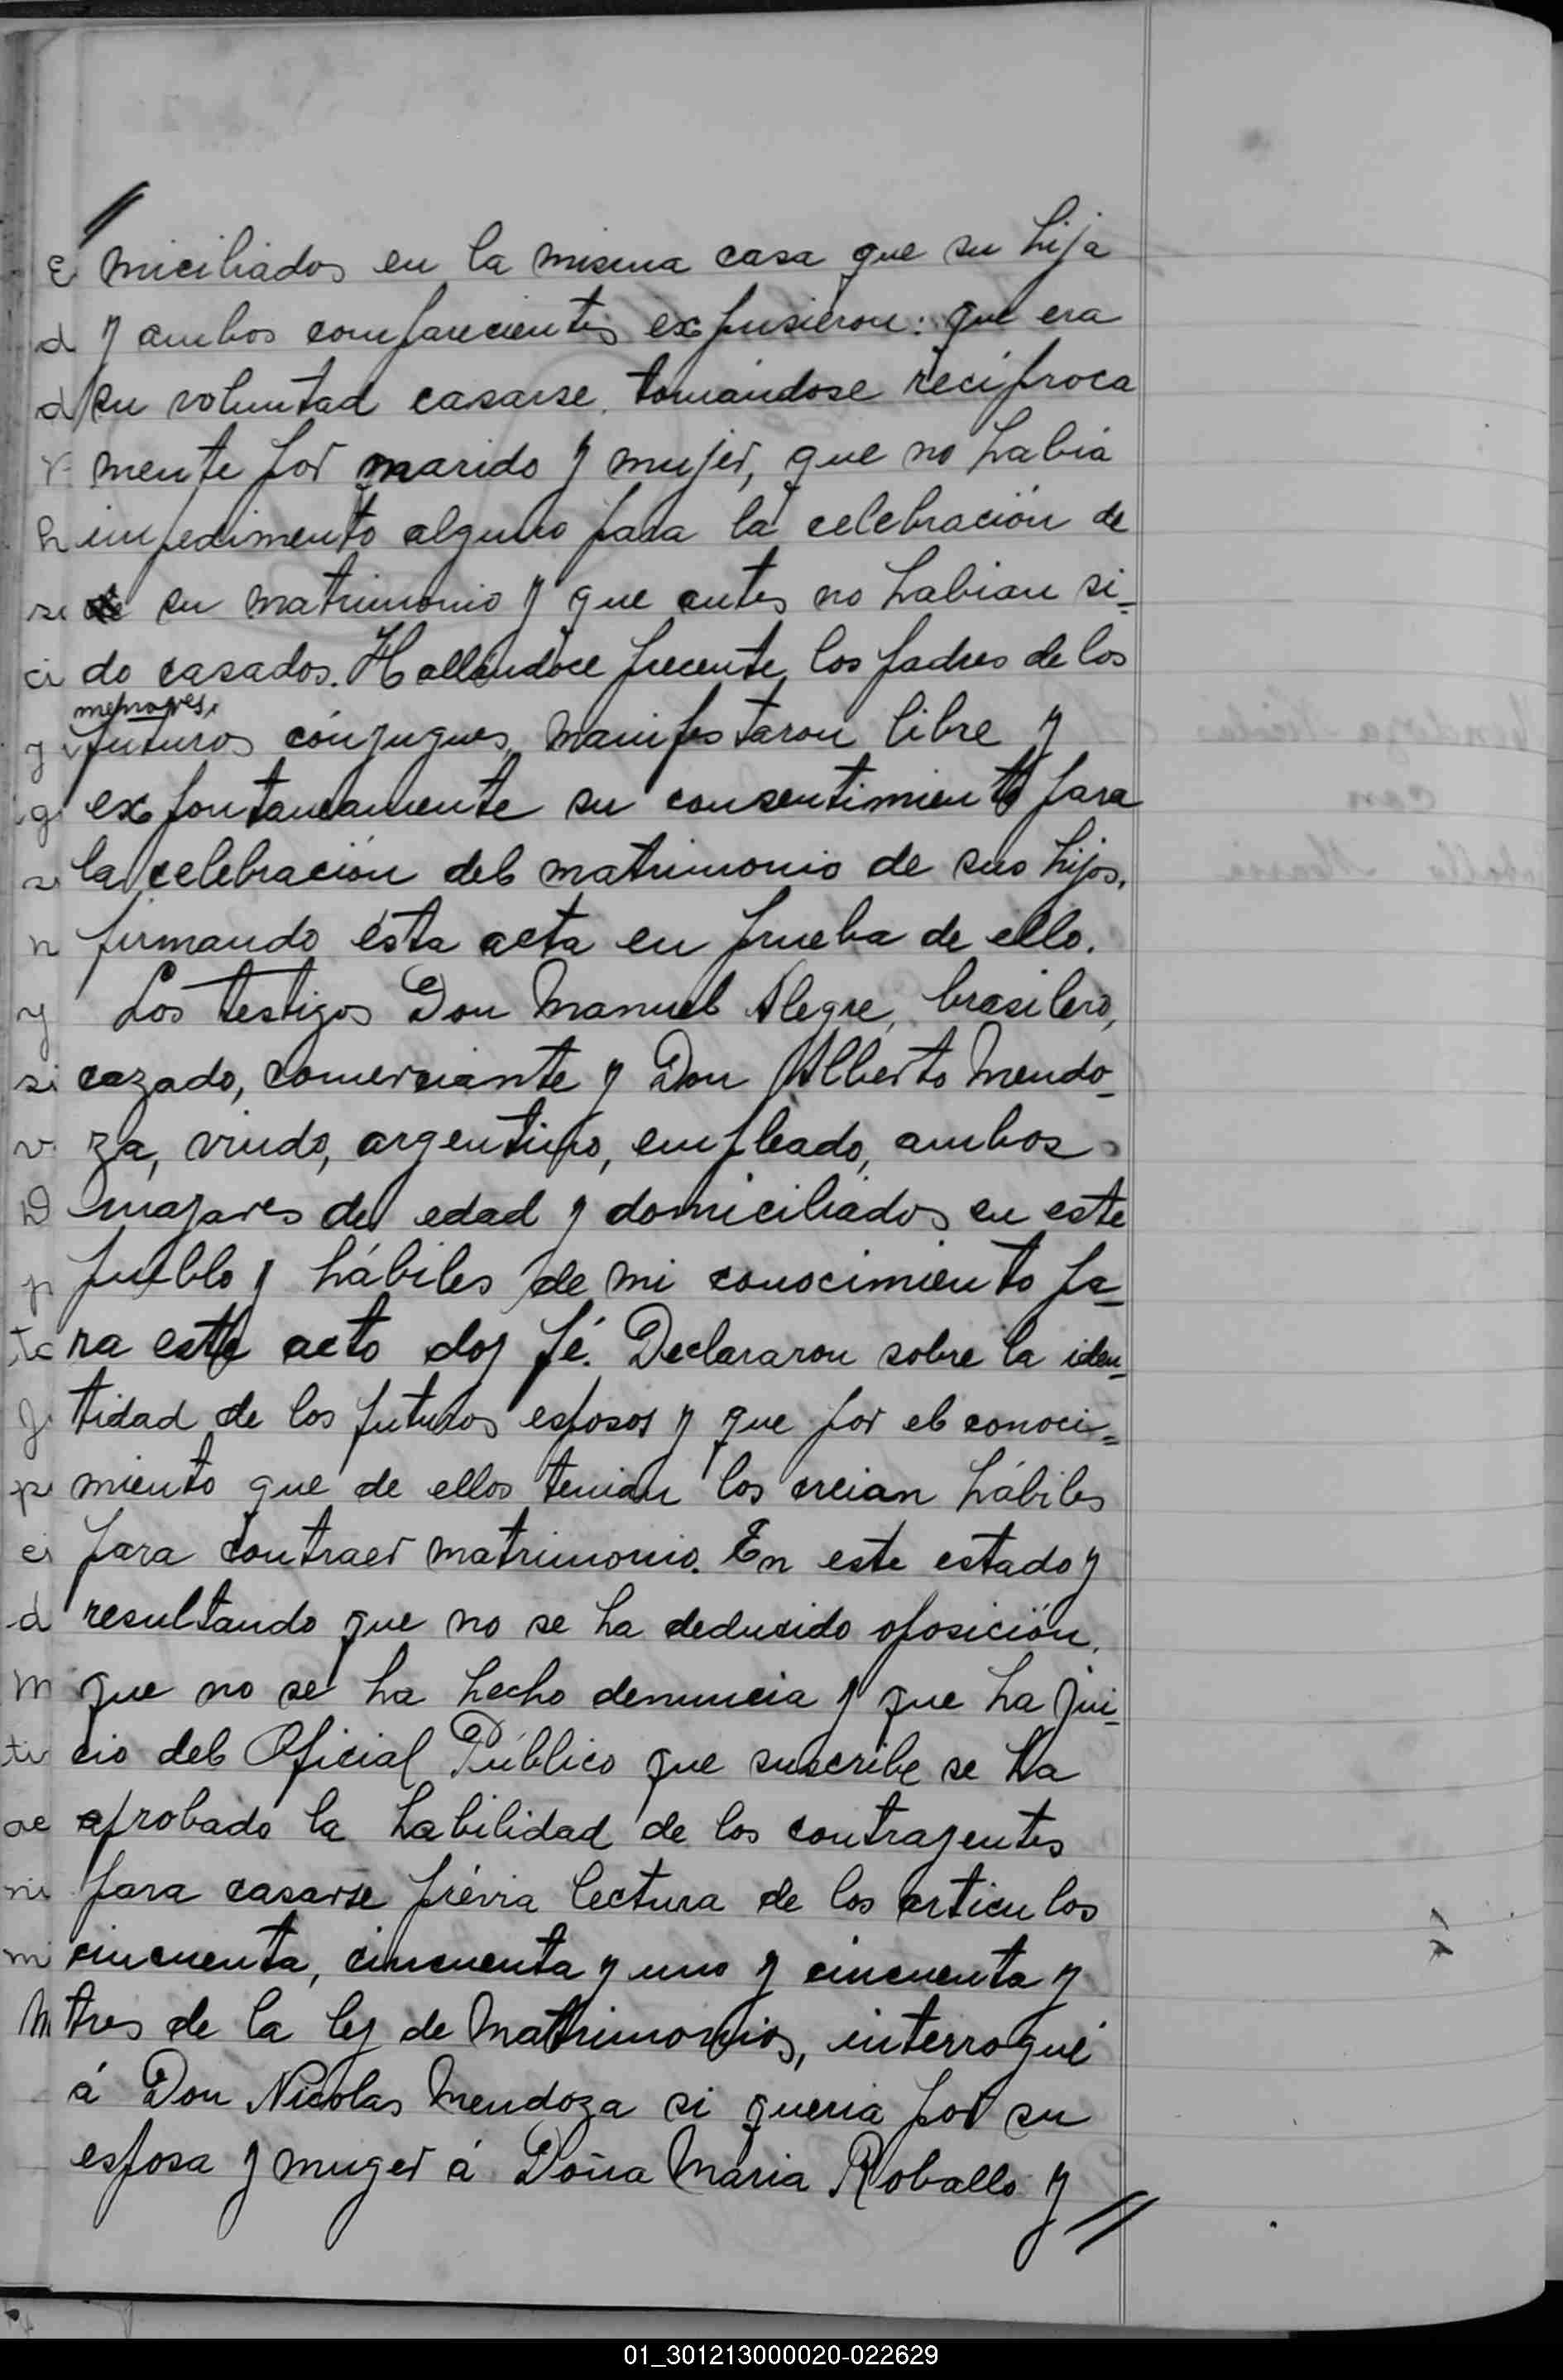 //
miciliados en la misma casa que su hija
y ambos comparecientes expusieron: que era
su voluntad casarse tomándose recíproca
mente por marido y mujer, que no había
impedimento alguno para la celebración de
su matrimonio y que antes no habian si-
do casados. Hallándoce precente los padres de los
menores
futuros cónyugues, manifestaron libre y
expontaneamente su consentimiento para
la celebración del matrimonio de sus hijos,
firmando ésta acta en prueba de ello.
Los testigos Don Manuel Alegre, brasilero,
cazado, comerciante y Don Alberto Mendo-
za, viudo, argentino, empleado, ambos
mayores de edad y domiciliados en este
pueblo y hábiles de mi conocimiento pa-
ra este acto doy fé. Declararon sobre la iden-
tidad de los futuros esposos y que por el conoci=
miento que de ellos tenian los creian hábiles
para contraer matrimonio. En este estado y
resultando que no se ha deducido oposición,
que no se ha hecho denuncia y que ha jui-
cio del Oficial Público que suscribe se ha
aprobado la habilidad de los contrayentes
para casarse prévia lectura de los articulos
cincuenta, cincuenta y uno y cincuenta y
tres de la ley de Matrimonios, interrogué
á Don Nicolas Mendoza si queria por su
esposa y muger á Doña Maria Roballo y
//
01_301213000020-022629